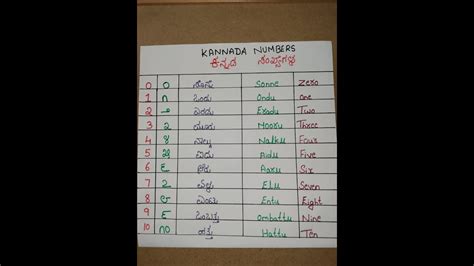 KANNADA NUMBERS
ಕನ್ನಡ ಸಂಖ್ಯೆಗಳು
0 ೦ ಸೊನ್ನೆ Sonne Zero
1 ೧ ಒಂದು Ondu One
2 ೨ ಎರಡು Eradu Two
3 ೩ ಮೂರು Mooru Three
4 ೪ ನಾಲ್ಕು Nalku Four
5 ೫ ಐದು Aidu Five
6 ೬ ಆರು Aaru Six
7 ೭ ಏಳು Elu Seven
8 ೮ ಎಂಟು Entu Eight
9 ೯ ಒಂಬತ್ತು Ombattu Nine
10 ೧೦ ಹತ್ತು Hattu Ten